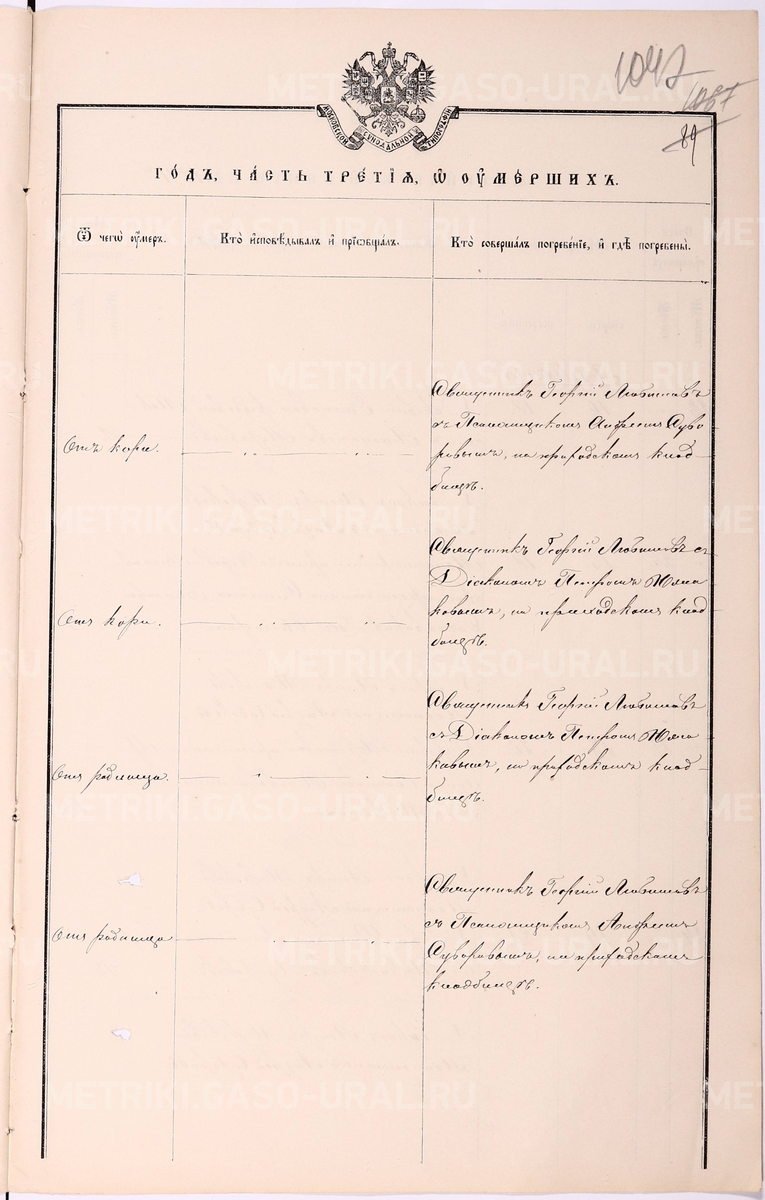 1047
1087
89
МОСКОВСКОЙ СѴНОДАЛЬНОЙ ТИПОГРАФІИ
ГО́ДЪ, ЧА́СТЬ ТРЕ́ТІѦ, Ѡ҆ ОУ҆МЕ́РШИХЪ.
Ѿ чегѡ̀ ᲂу҆́меръ.
Кто̀ и҆сповѣ́дывалъ и҆ прїѡбща́лъ.
Кто̀ соверша́лъ погребе́нїе, и҆ гдѣ̀ погребены̀.
Отъ кори.
Священникъ Георгій Любимовъ
съ Псаломщикомъ Андреемъ Суво-
ровымъ, на приходскомъ клад-
бищѣ.
Отъ кори.
Священникъ Георгій Любимовъ съ
Діакономъ Петромъ
ковымъ, на приходскомъ клад-
бищѣ.
Отъ родимца.
Священникъ Георгій Любимовъ
съ Діакономъ Петромъ
ковымъ, на приходскомъ клад-
бищѣ.
Отъ родимца
Священникъ Георгій Любимовъ
съ Псаломщикомъ Андреемъ
Суворовымъ, на приходскомъ
кладбищѣ.
METRIKI.GASO-URAL.RU